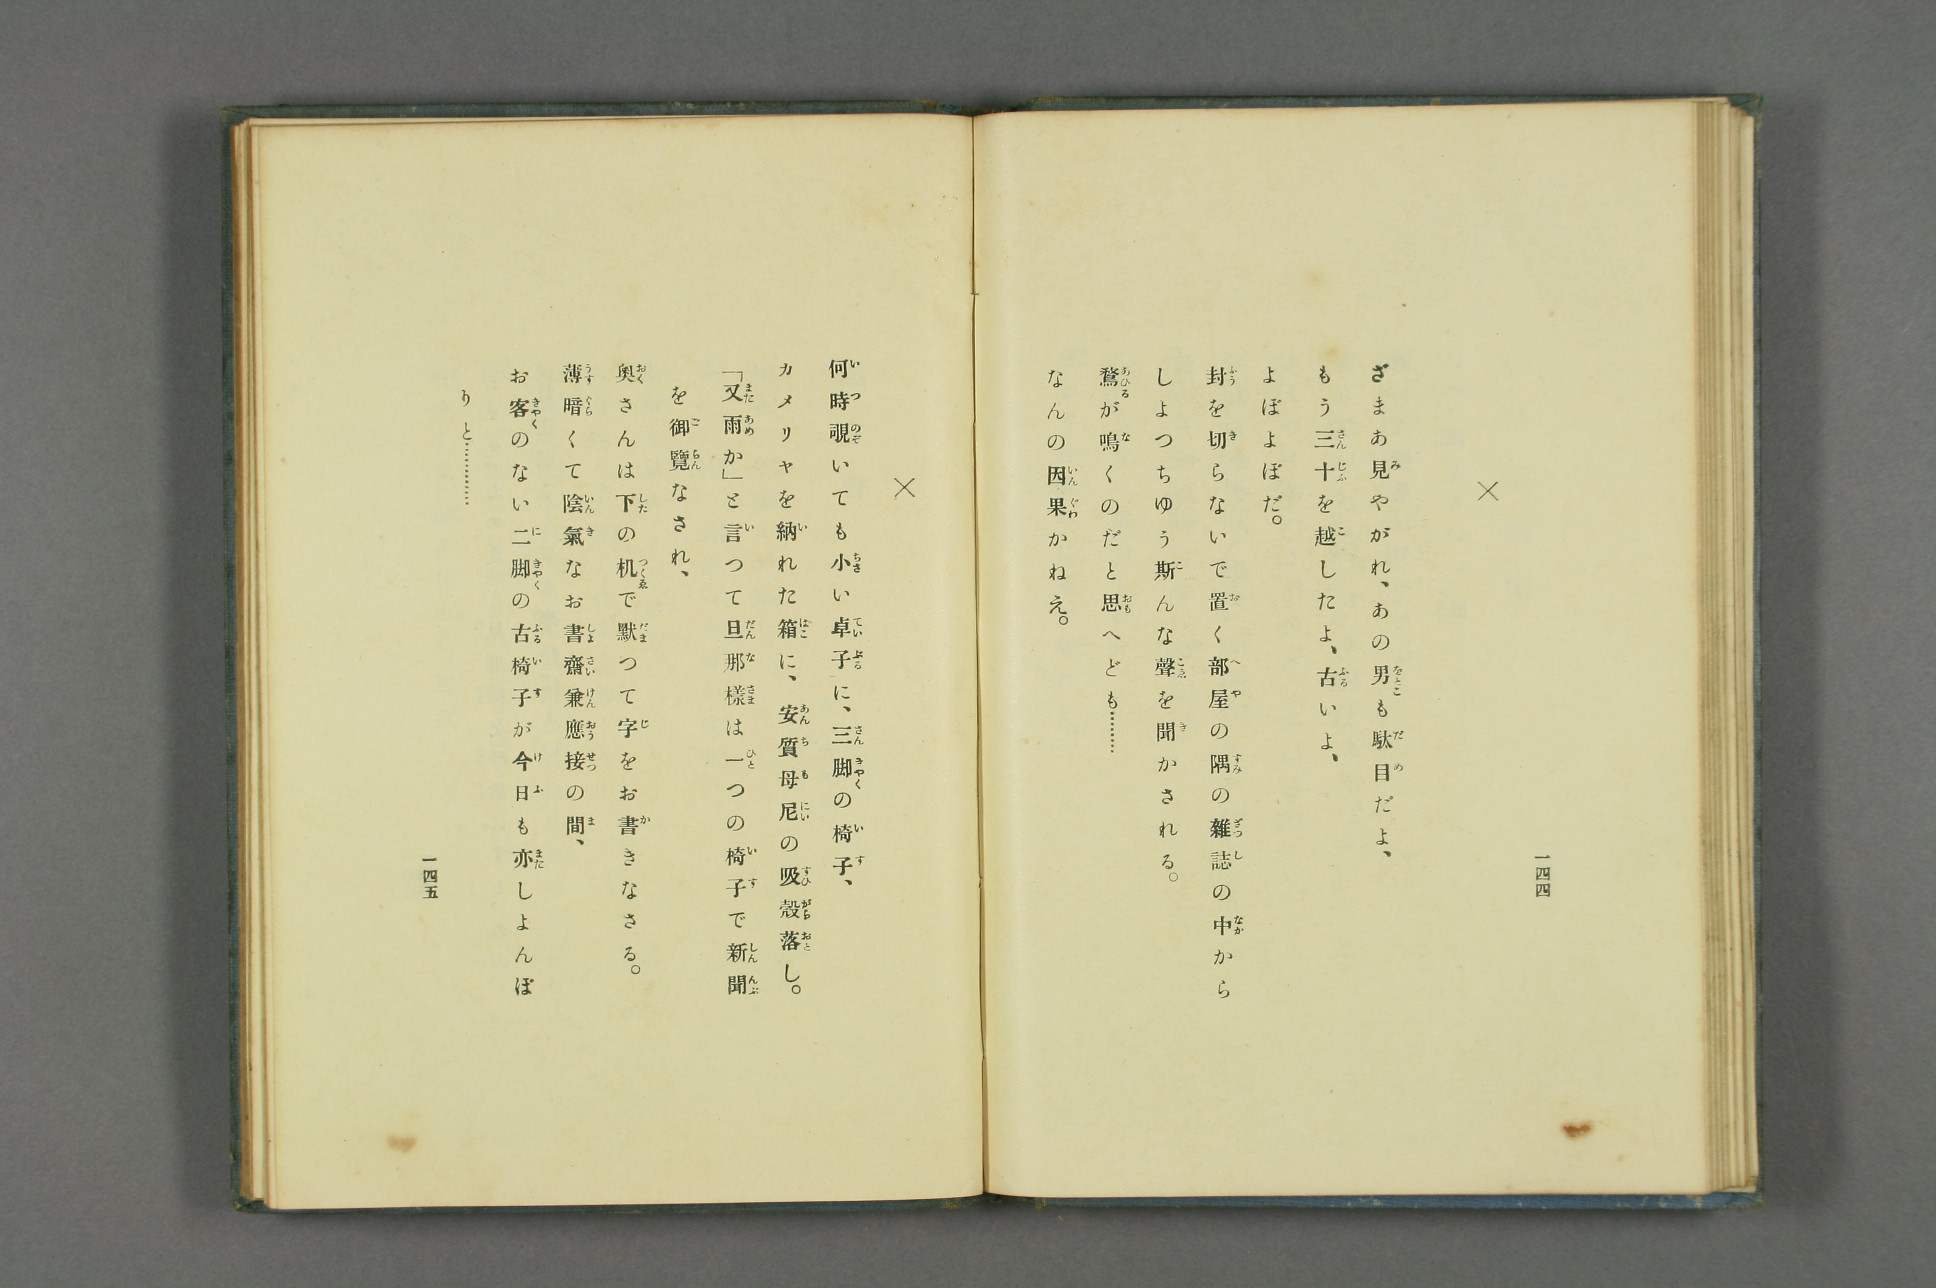 ×
ざまあ見やがれ、あの男も駄目だよ、
もう三十を越したよ、古いよ、
よぼよぼだ。
封を切らないで置く部屋の隅の雜誌の中から
しよつちゆう斯んな聲を聞かされる。
鶩が鳴くのだと思へども…………
なんの因果かねえ。
一四四
×
何時覗いても小い卓子に、三脚の椅子、
カメリヤを納れた箱に、安質母尼の吸殼落し。
「又雨か」と言つて旦那樣は一つの椅子で新聞
を御覽なされ、
奥さんは下の机で默つて字をお書きなさる。
薄暗くて陰氣なお書齋兼應接の間、
お客のない二脚の古椅子が今日も亦しよんぼ
りと…………
一四五